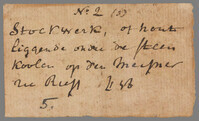 No 2
Stockwerk, of hout
liggende onder de steen
koolen op den Meisner
in
5.